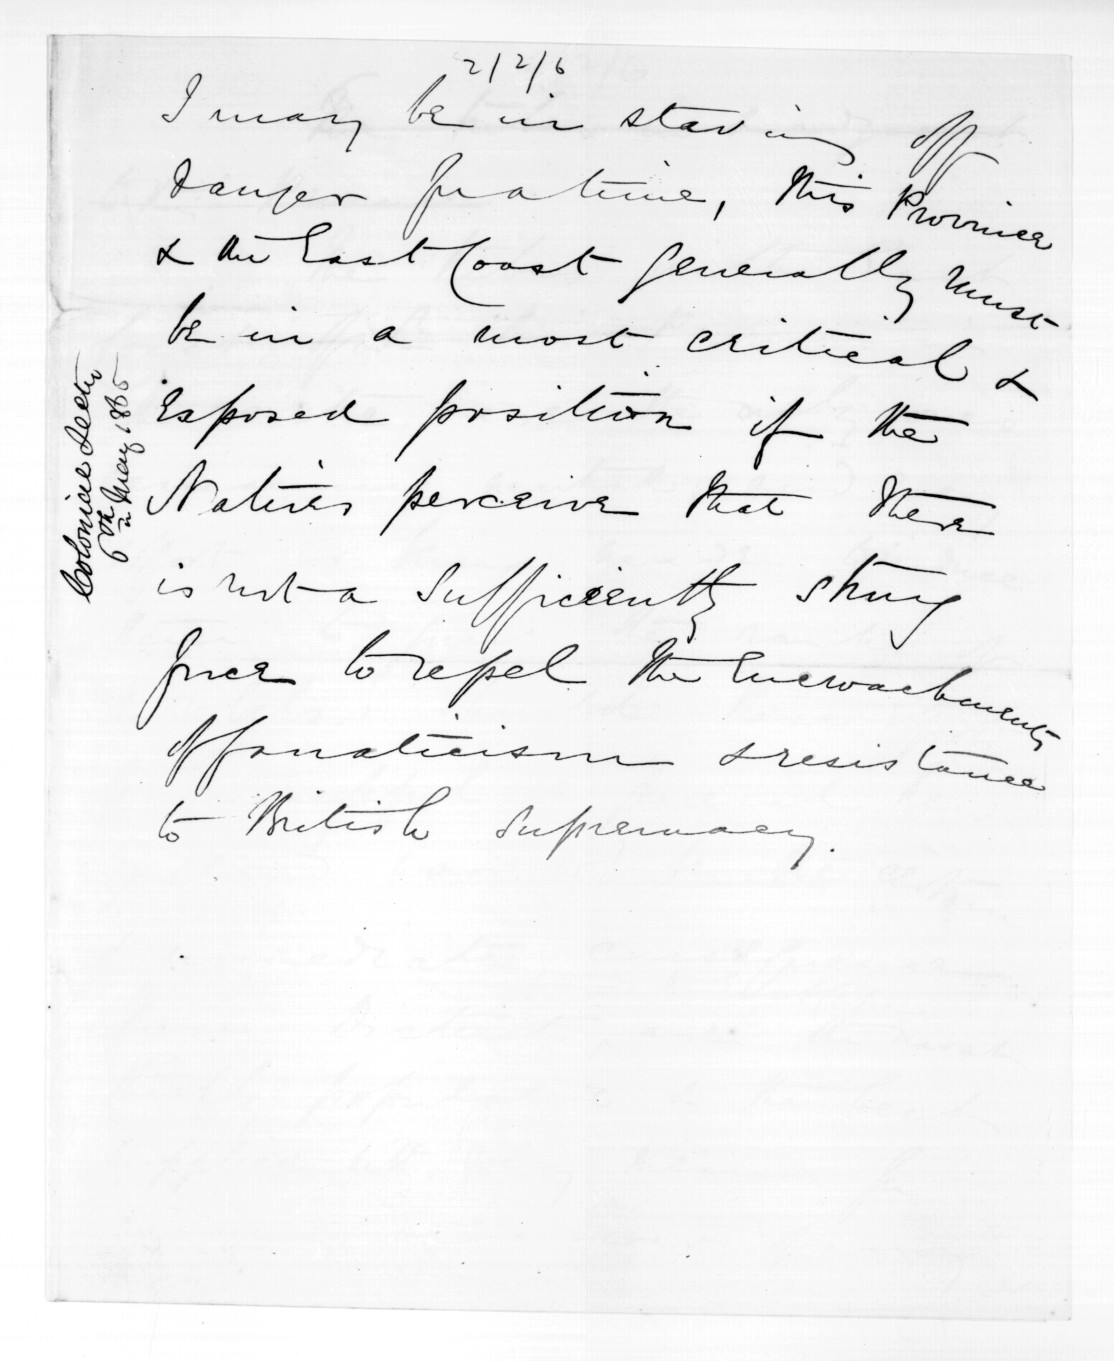 2/2/6
I may be in staving off
danger for a time, this Province
& the East Coast generally must
be in a most critical &
exposed position if the
Natives perceive that there
is not a sufficiently strong
force to repel the encroachments
of fanaticism & resistance
to British supremacy.
Colonial Secty
6th May 1865